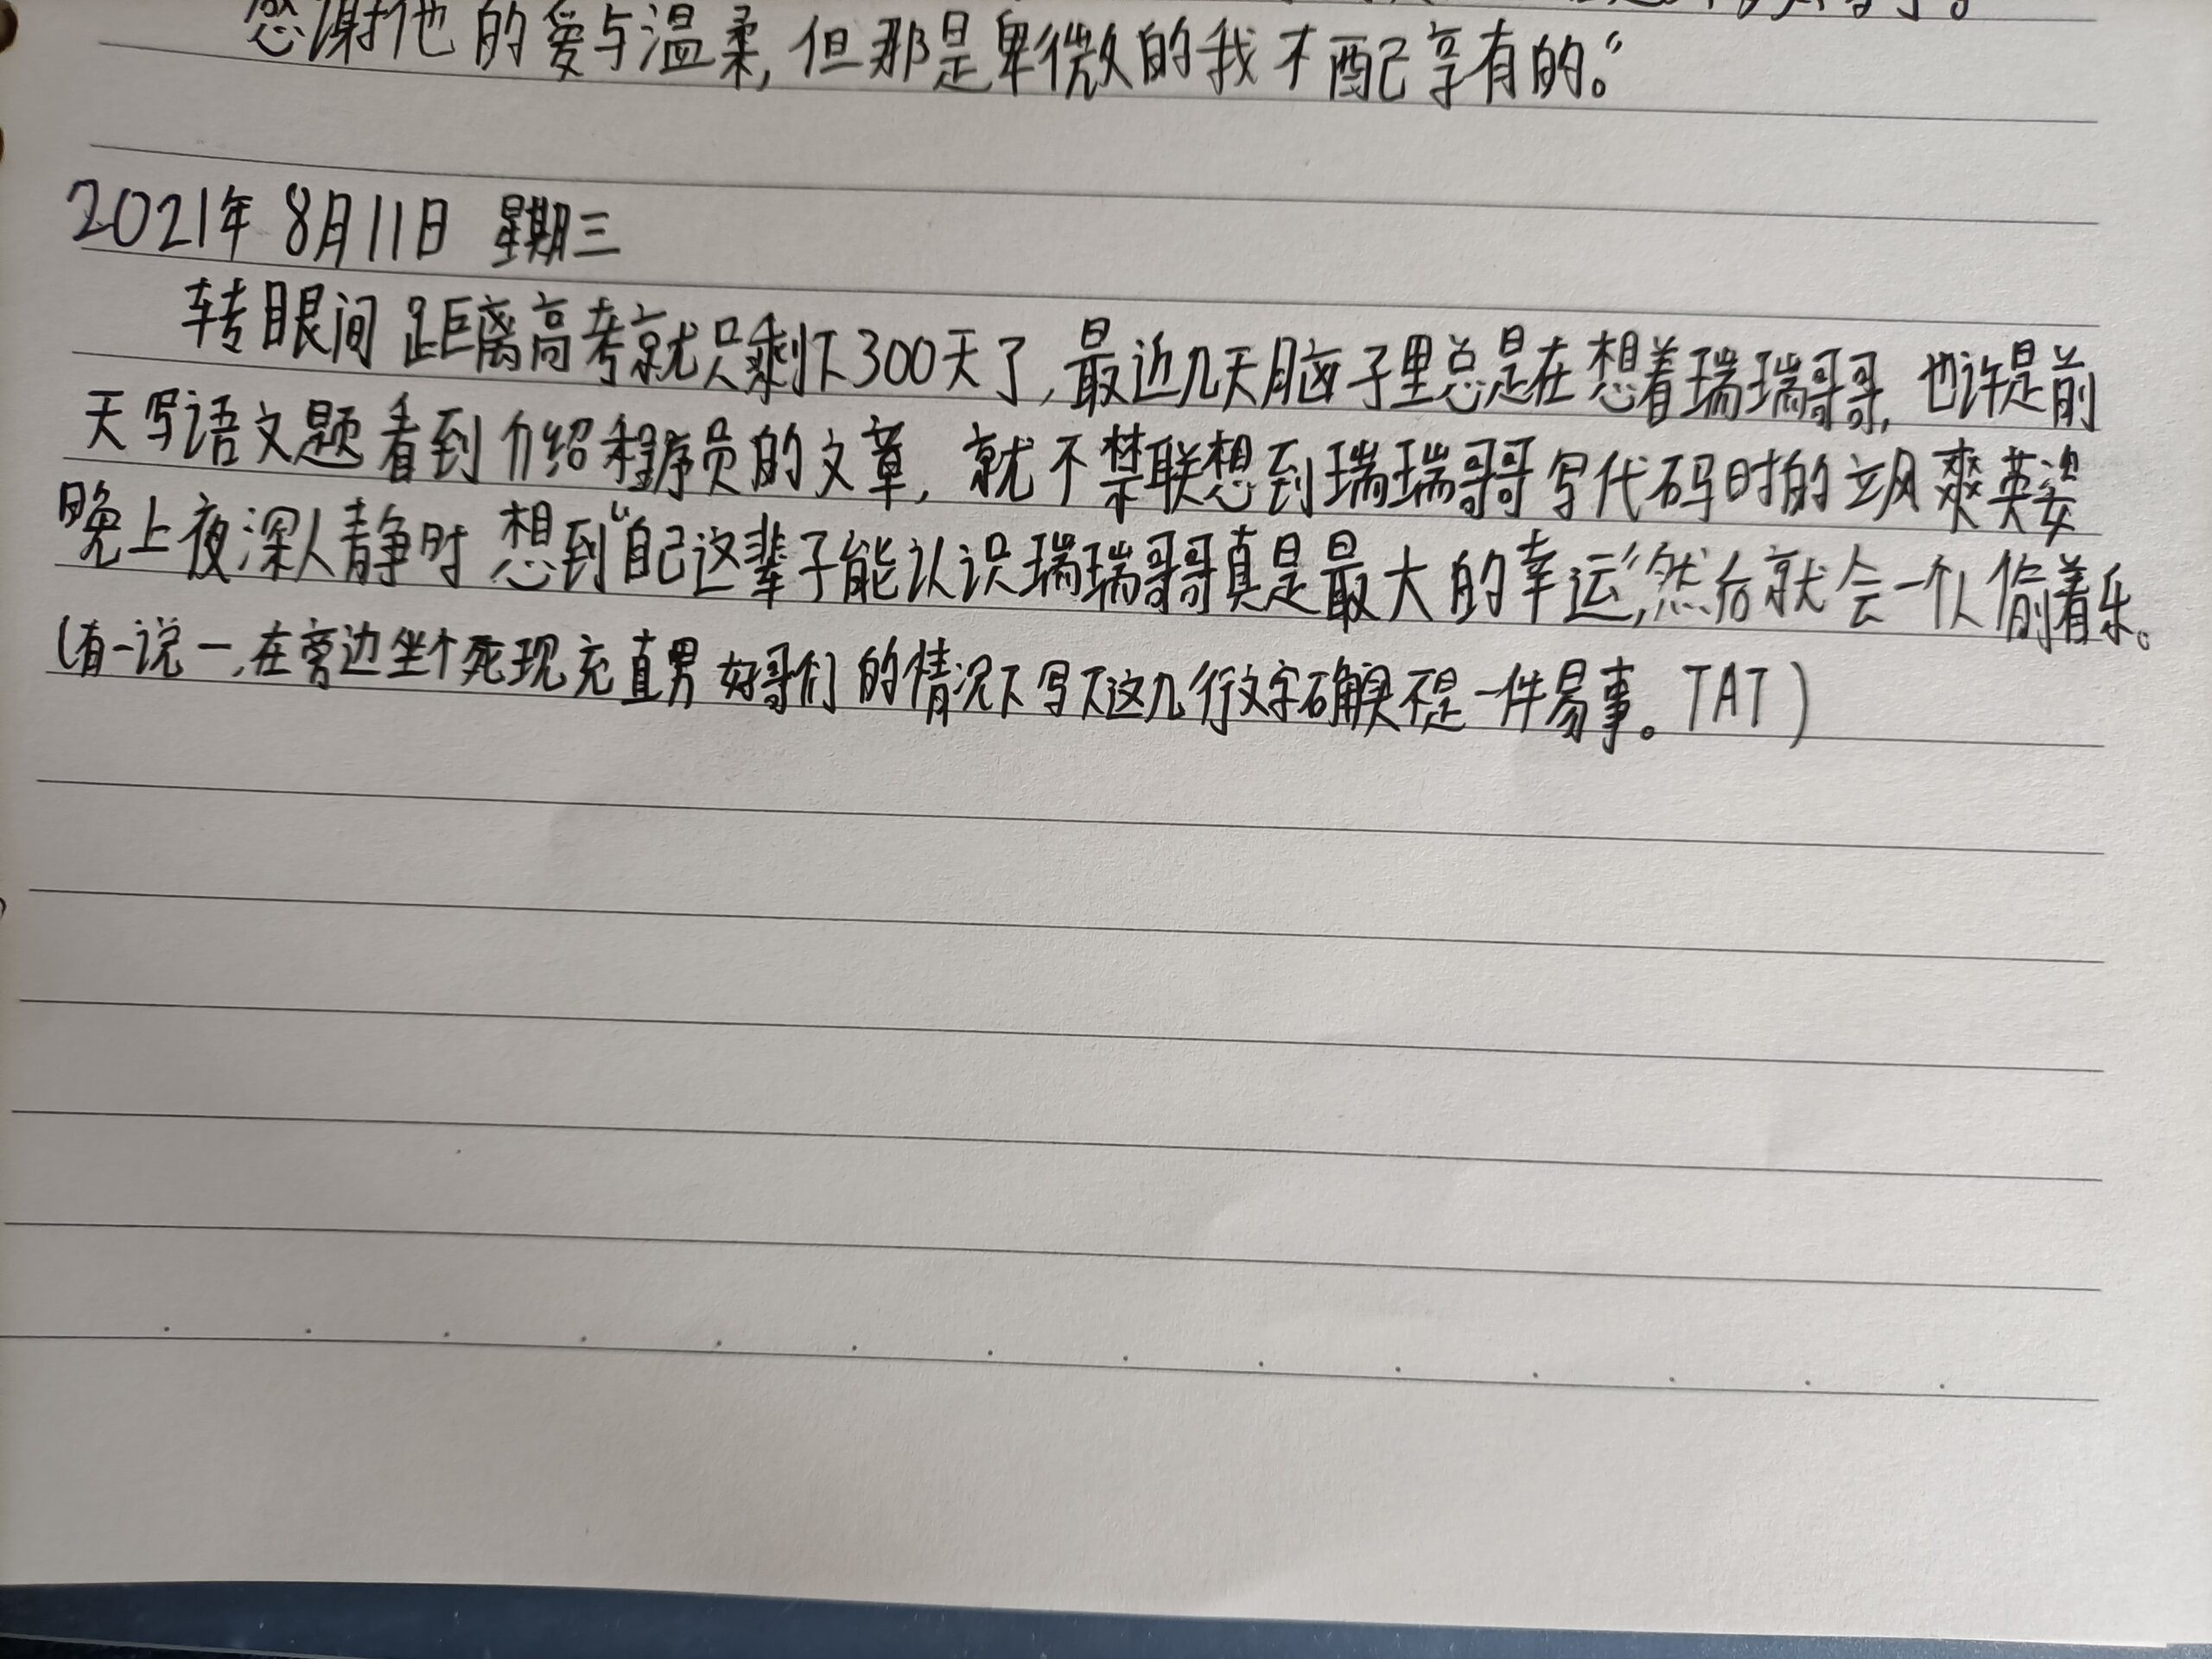 感谢他的爱与温柔,但那是卑微的我不配享有的。”
2021年8月11日 星期三
转眼间距离高考就只剩下300天了,最近几天脑子里总是在想着瑞瑞哥哥,也许是前
天写语文题看到介绍程序员的文章,就不禁联想到瑞瑞哥哥写代码时的飒爽英姿
晚上夜深人静时想到“自己这辈子能认识瑞瑞哥哥真是最大的幸运”,然后就会一个人偷着乐。
(有一说一,在旁边坐个死现充直男好哥们的情况下写下这几行文字确实不是一件易事。TAT)